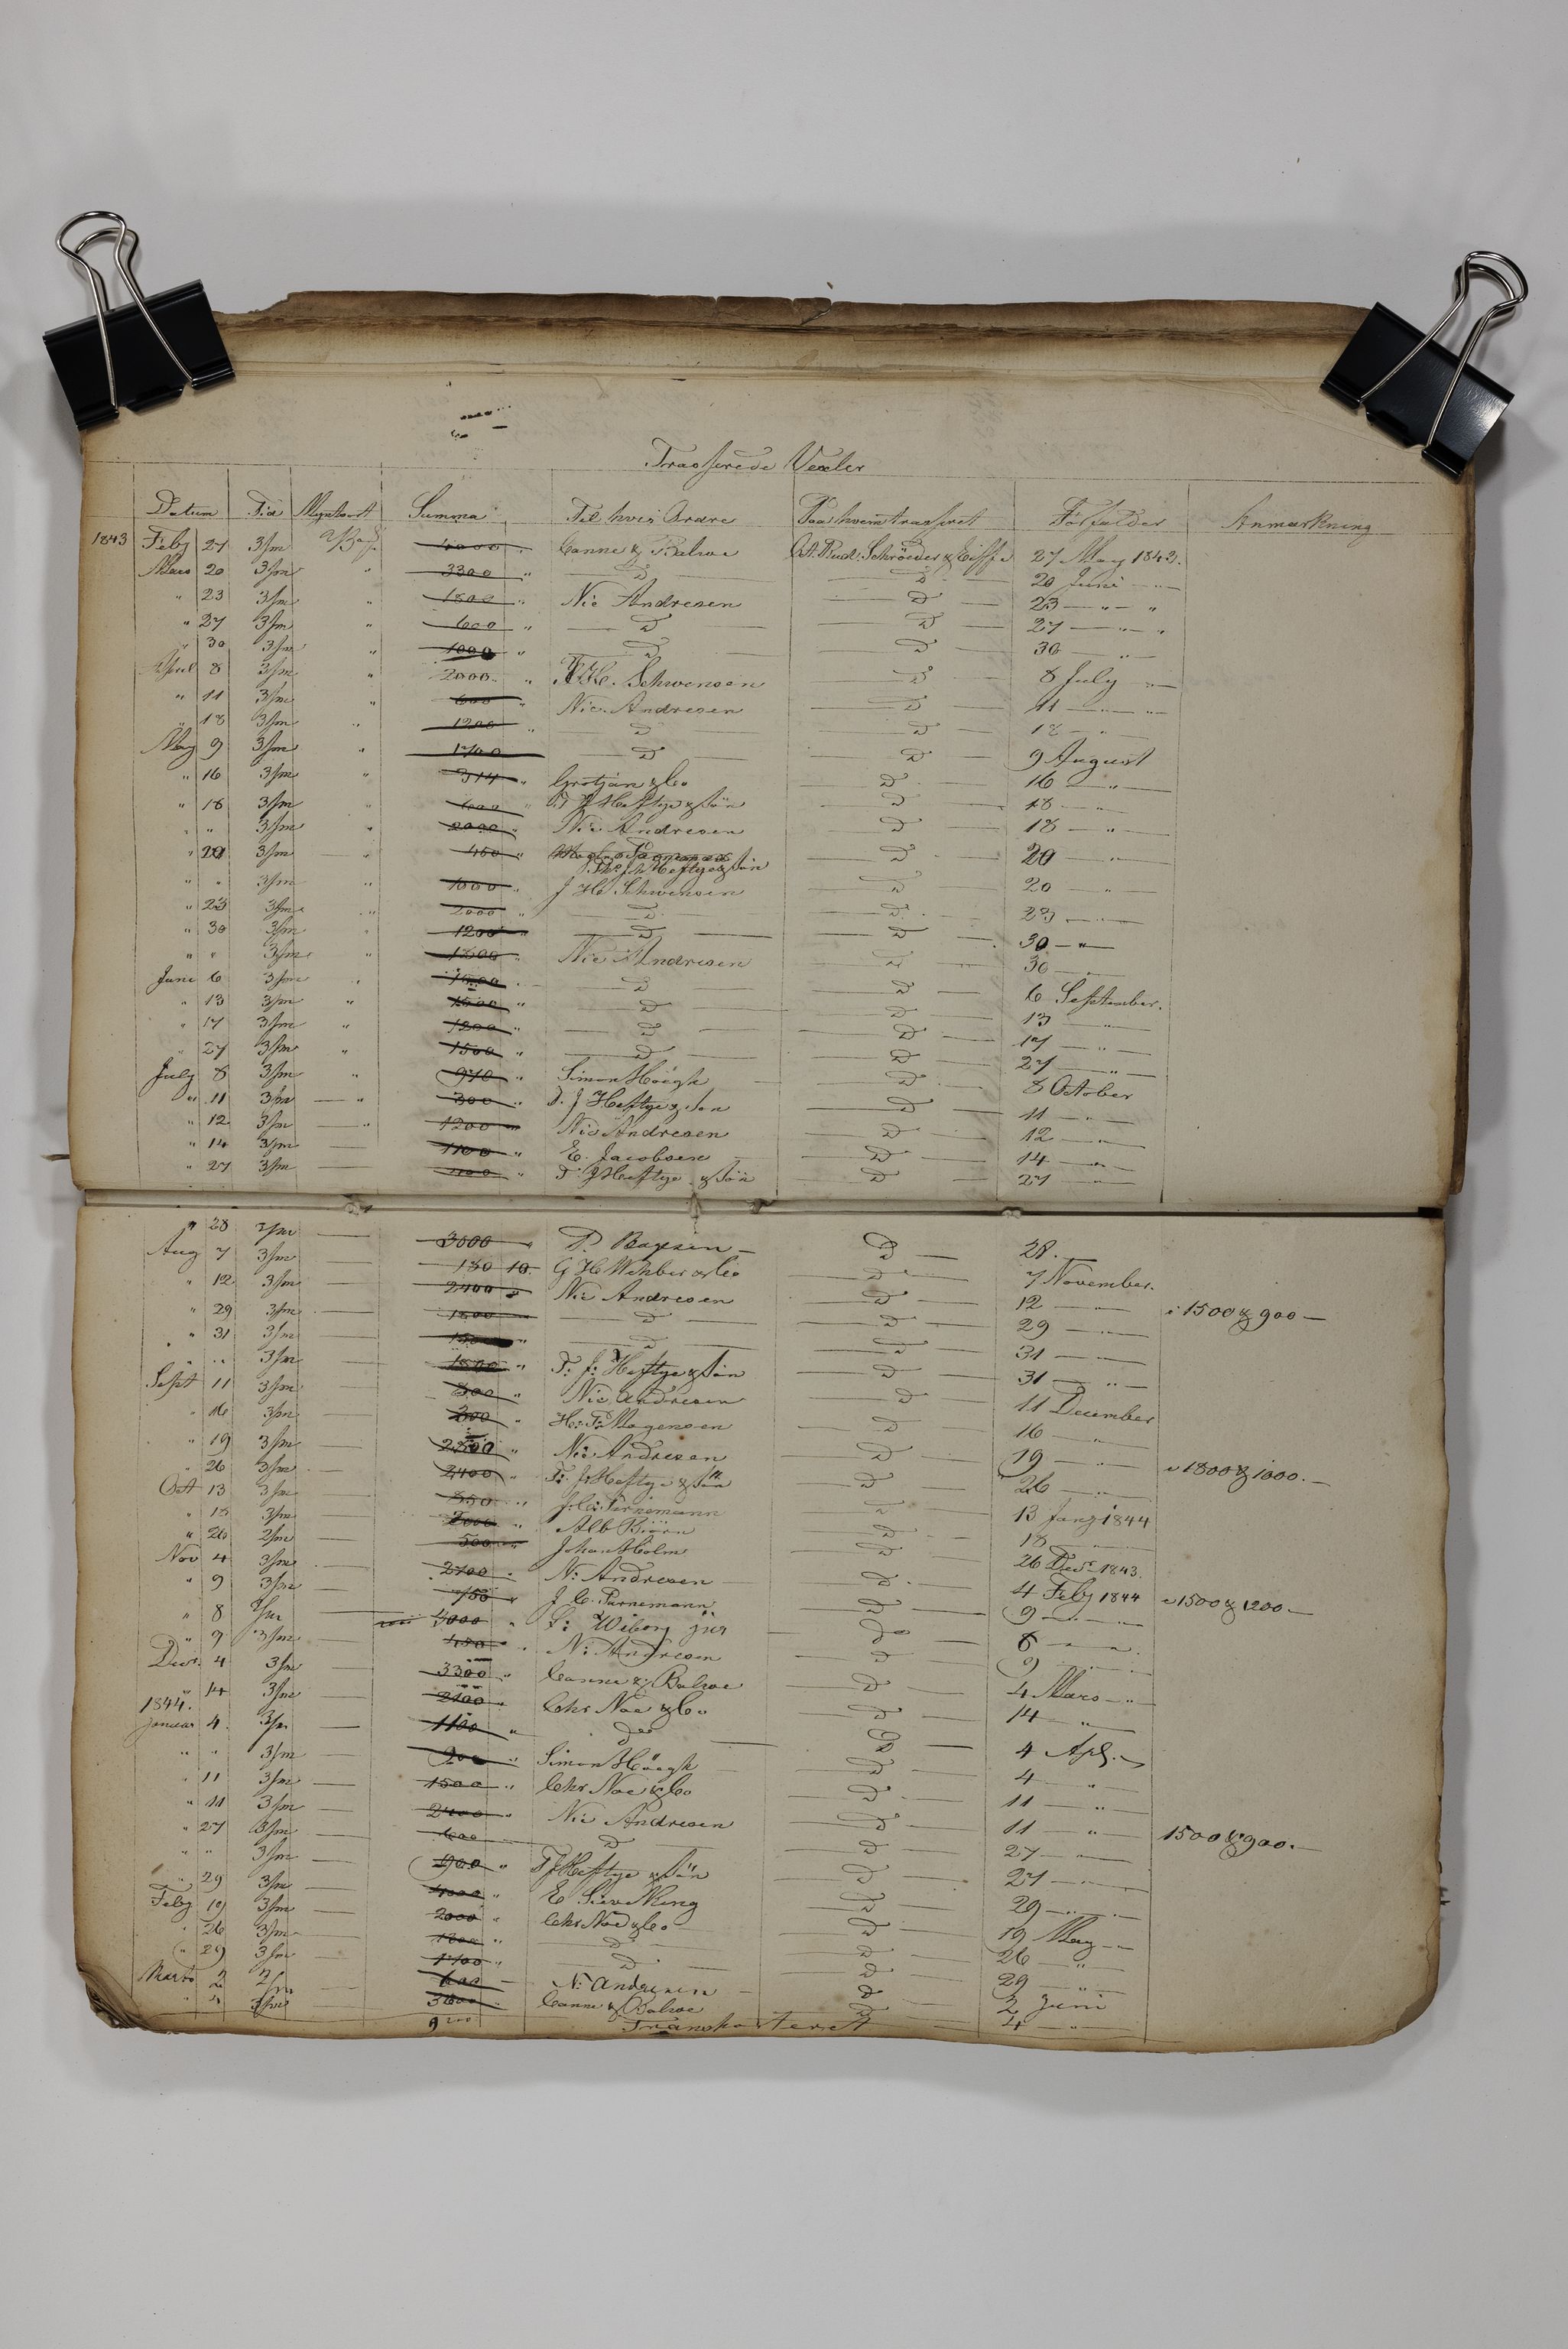 Trasserede Vexler
Datum Tid Myntsort Summa Til hvis Ordre Paa hvem trasseret Forfalder Anmærkning
1843 Feby 27 3/m 4000 " Canne & Balwe Ct. Rud: Schröder & Eiffe 27 May 1843.
Mars 20 3/m " 3300 " — D — — D — 20 Juni — "
" 23 3/m " 1800 " Nic Andresen — D — 23 — " — "
" 27 3/m " 600 " — D — — D — 27 — " — "
" 30 3/m " 1000 " — D — — D — 30 — "
April 8 3/m " 2000 " Schwensen — D — 8 July — "
" 11 3/m " 600 " Nic. Andresen — D — 11 — " — "
" 18 3/m " 1200 " — D — — D — 18 — "
May 9 3/m " 1700 — D — — D — 9 August
" 16 3/m " 314 " Grotjan & Co — D — 16 — " —
" 18 3/m " 600 " T J Heftye & Sön — D — 18 — "
" " 3/m " 2000 " Nic Andresen — D — 18 — "
" 20 3/m " 400 " — D — 20 — " —
Ths. Joh Heftye & Sön
" " 3/m " 1000 " J H Schwensen — D — 20 — "
" 23 3/m " 2000 " — D — — D — 23 — " —
" 30 3/m " 1200 " — D — — D — 30 — " —
" " 3/m " 1800 " Nic Andresen — D — 30 — "
Juni 6 3/m " — D — — D — 6 September.
" 13 3/m " " — D — — D — 13 — "
" 17 3/m " 1200 " — D — — D — 17 — " —
" 27 3/m " 1500 " — D — — D — 27 — " —
July 8 3/m 970 " Simon Höegh — D — 8 October
" 11 3/m — " 300 " T. J Heftye & Son — D — 11 — " —
" 12 3/m — " 1200 " Nic Andresen — D — 12 — "
" 14 3/m — 1100 " E. Jacobsen — D — 14 — " —
" 27 3/m — " T J Heftye & Sön — D — 27 — "
" 28 3/m — 3000 " P. Boyesen — D — 28. —
Aug 7 3/m — 180 10. G H Wehber & Co — D — 7 November.
" 12 3/m — 2400 " Nic Andresen — D — 12 — " " 1500 & 900 —
" 29 3/m — 1800 — D — — D — 29 — "
" 31 3/m — " — D — — D — 31 — "
" " 3/m — 1800 " T. J. Heftye & Sön — D — 31 — " —
Sept 11 3/m — 800 " Nic Andresen — D — 11 December
" 16 3/m — " H: P: Mogensen — D — 16 — "
" 19 3/m — 2800 " Nic Andresen — D — 19 — " " 1800 & 1000. —
" 26 3/m — 2400 " T. J. Heftye & Sön — D — 26 — "
Oct 13 3/m — 850 " — D — 13 Jany 1844
" 18 3/m — 2000 " Alb Biörn — D — 18 — "
" 26 2/m — 500 " Johan Holm — D — 26 Decr 1843.
Nov 4 3/m — 2700 " N: Andresen — D — 4 Feby 1844 " 1500 & 1200 —
" 9 3/m — 750 " — D — 9 — "
" 8 — 4000 " Wiborg jür — Do — 8 — "
" 9 3/m — 450 " N: Andresen — D — 9 — "
Decr. 4 3/m — 3300 " Canne & Balwe — D — 4 Mars — "
" 14 3/m — 2100 " Chr Noe & Co — D — 14 — "
1844.
Januar 4. 3/m — 1100 " Do — D — 4 Apl. —
" " 3/m — 900 " Simon Höegh — D — 4 — "
" 11 3/m — 1500 " Chr Noe & Co — D — 11 — "
" 11 3/m — 2400 " Nic Andresen — D — 11 — " 1500 & 900. —
" 27 3/m — 600 — D — — D — 27 — "
" " 3/m — 900 " T J Heftye & Sön — D — 27 — "
" 29 3/m — 4000 " E Sieveking — D — 29 — "
Feby 19 3/m — 2000 " Chr Noe & Co — D — 19 May — "
" 26 3/m — " — D — — D — 26 — "
" 29 3/m — 1700 " — D — — D — 29 — "
Marts 2 — 600 — N: Andresen — D — 2 Juni
" 4 3/m — 3600 " Canne & Balwe — D — 4 — "
Transporteret